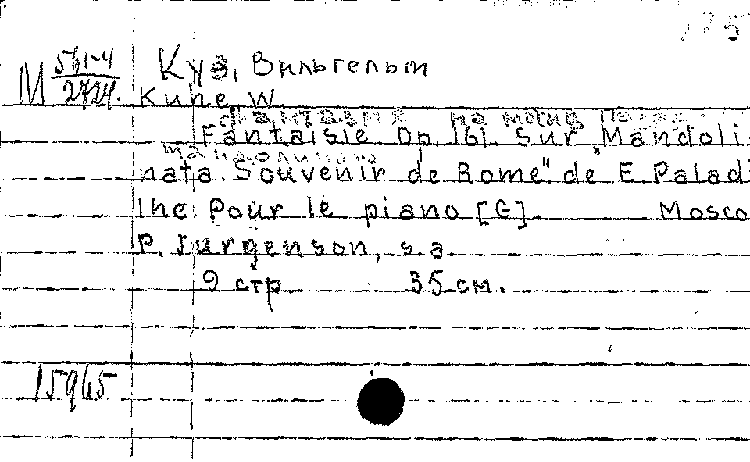 175
М 561-4 Куэ, Вильгельм
2724. Kuhe W.
Фантазия на мотив песни
Fantaisie Op. 161. Sur „Mandoli-
мандолината
nata. Souvenir de Rome" de E. Palad
ihe pour le piano [G]. Mosco
P. Jurgenson, s.a.
9 стр. 35 см.
15965